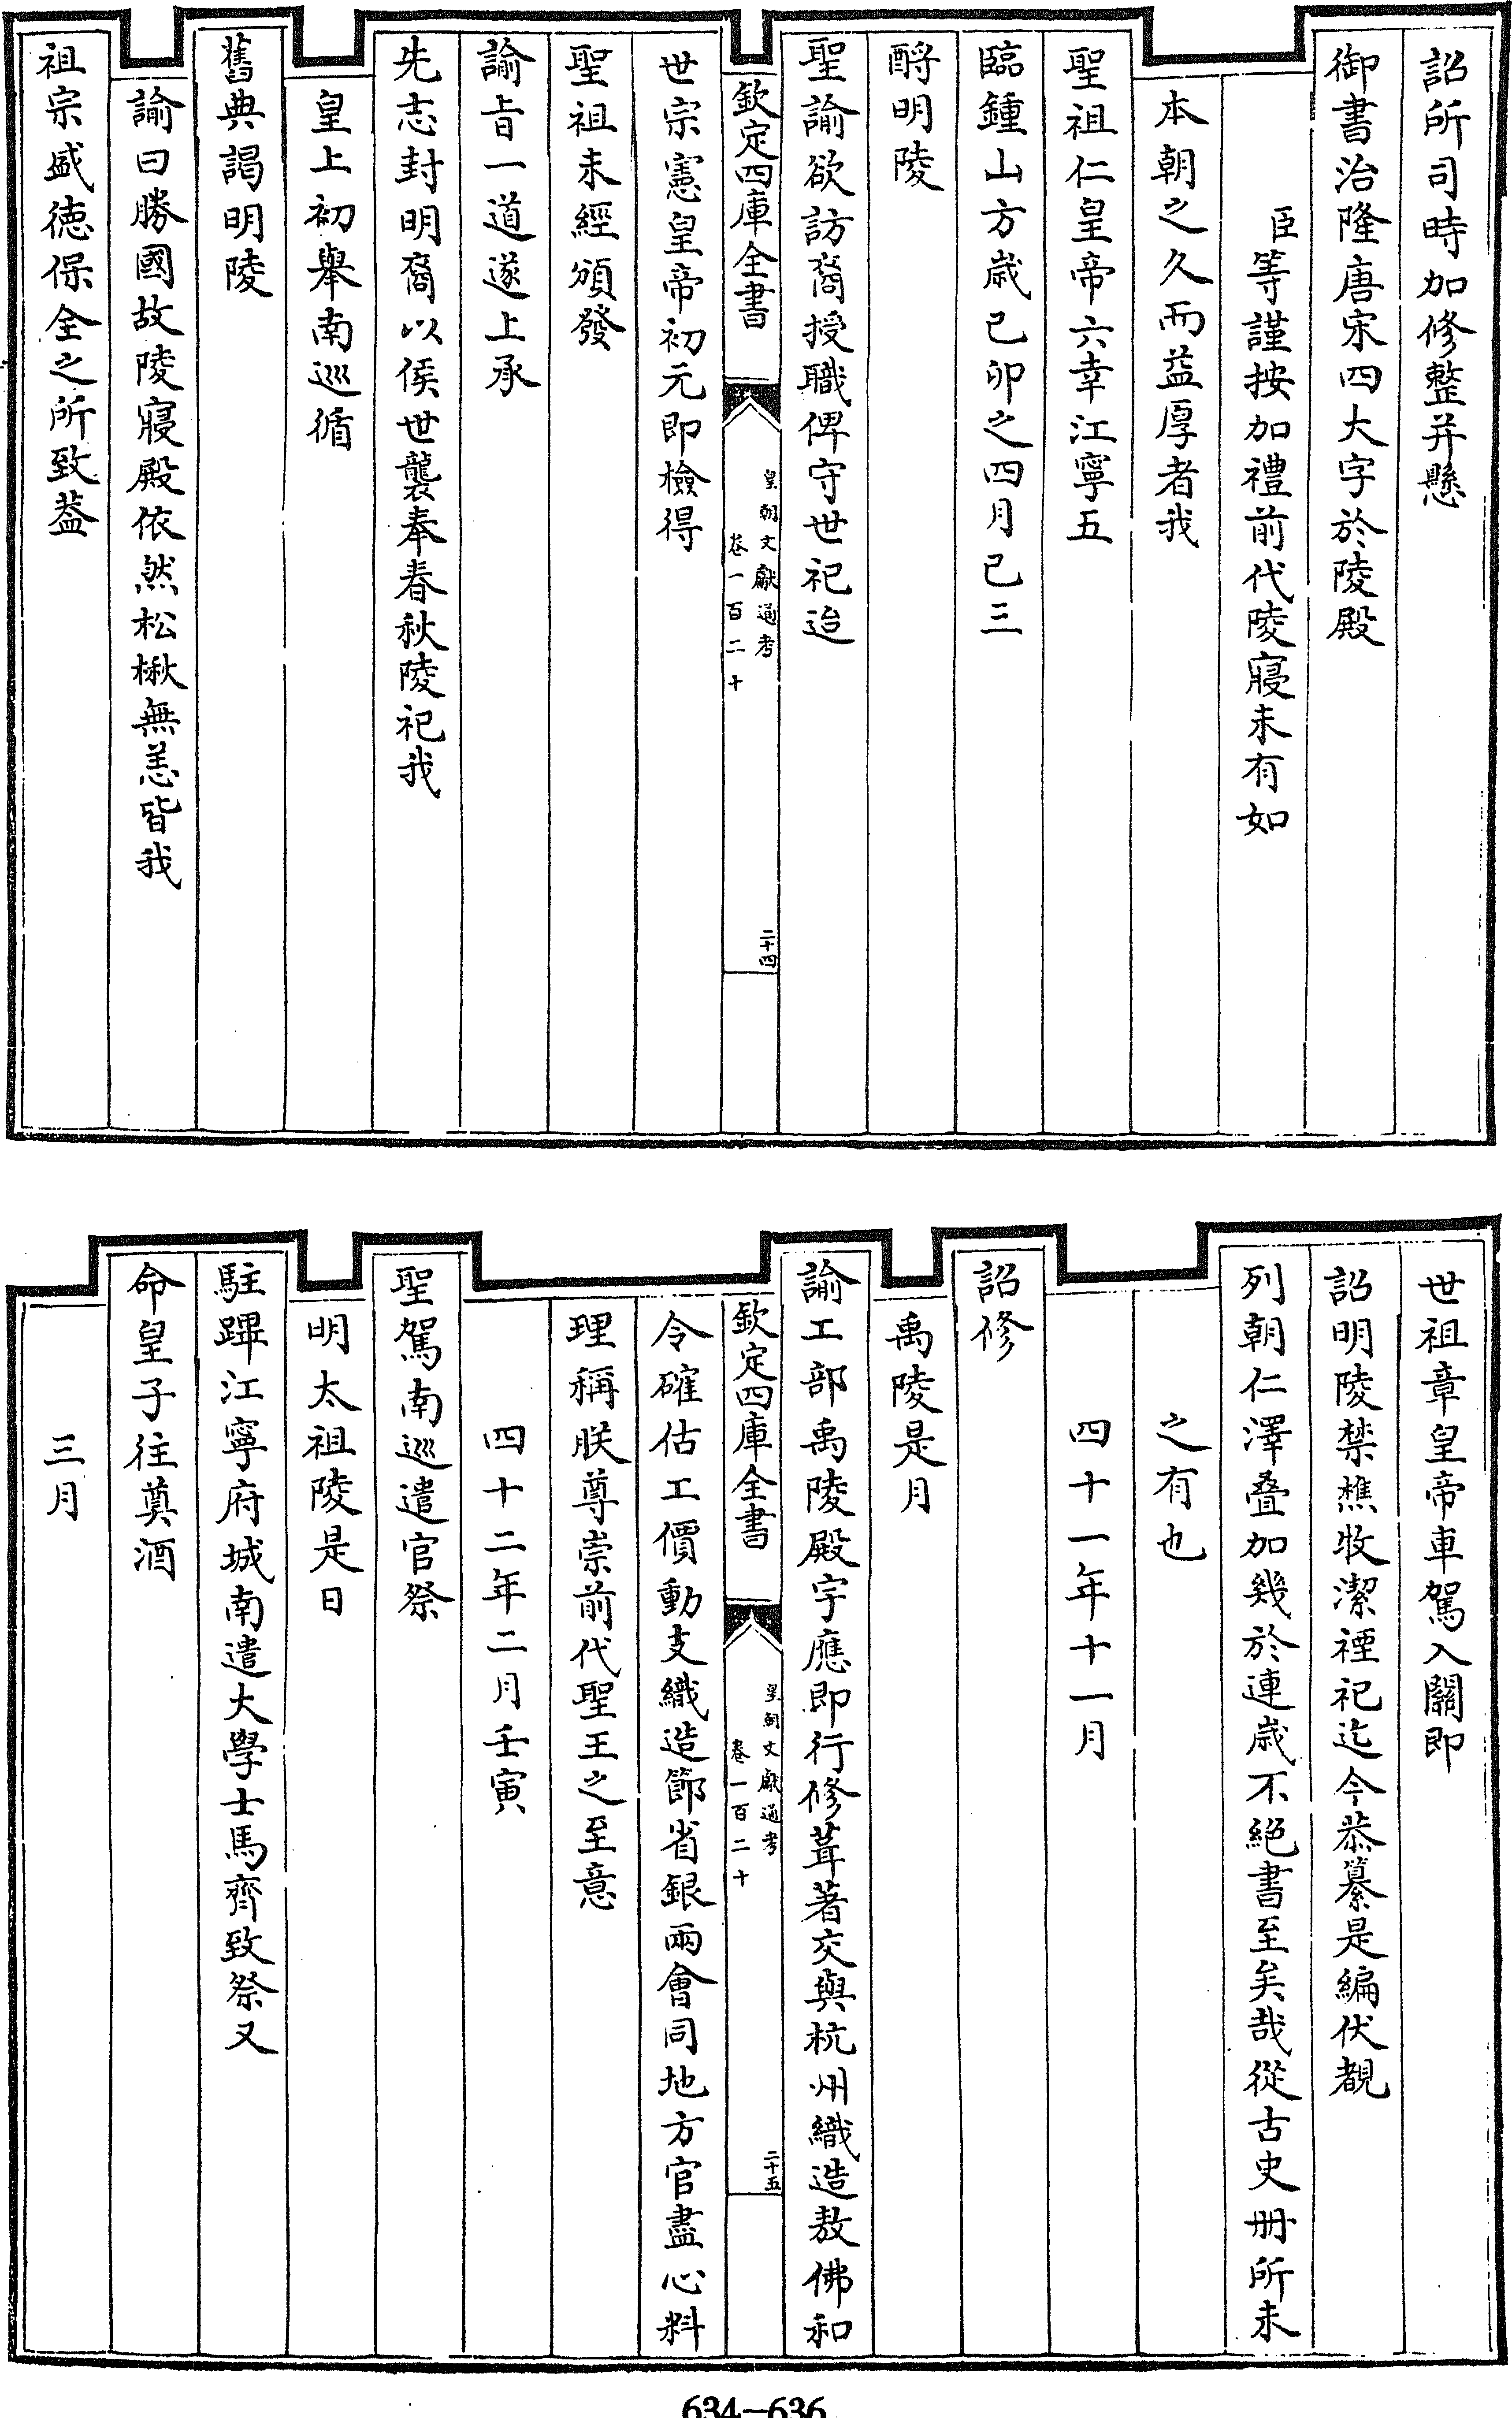 詔所司時加修整并懸
御書治隆唐宋四大字於陵殿
臣等謹按加禮前代陵寢未有如
本朝之久而益厚者我
聖祖仁皇帝六幸江寧五
臨鍾山方歲己卯之四月已三
酹明陵
聖諭欲訪裔授職俾守世祀迨
欽定四庫全書
皇朝文獻通考
卷一百二十
二十四
世宗憲皇帝初元即檢得
聖祖未經頒發
諭旨一道遂上承
先志封明裔以侯世襲奉春秋陵祀我
皇上初舉南巡循
舊典謁明陵
諭曰勝國故陵寢殿依然松楸無恙皆我
祖宗盛德保全之所致葢
世祖章皇帝車駕入關即
詔明陵禁樵牧潔禋祀迄今恭纂是編伏覩
列朝仁澤疊加幾於連歲不絕書至矣哉從古史冊所未
之有也
四十一年十一月
詔修
禹陵是月
諭工部禹陵殿宇應即行修葺著交與杭州織造敖佛和
欽定四庫全書
皇朝文獻通考
卷一百二十
二十五
令確估工價動支織造節省銀兩會同地方官盡心料
理稱朕尊崇前代聖王之至意
四十二年二月壬寅
聖駕南巡遣官祭
明太祖陵是日
駐蹕江寧府城南遣大學士馬齊致祭又
命皇子往奠酒
三月
634-636